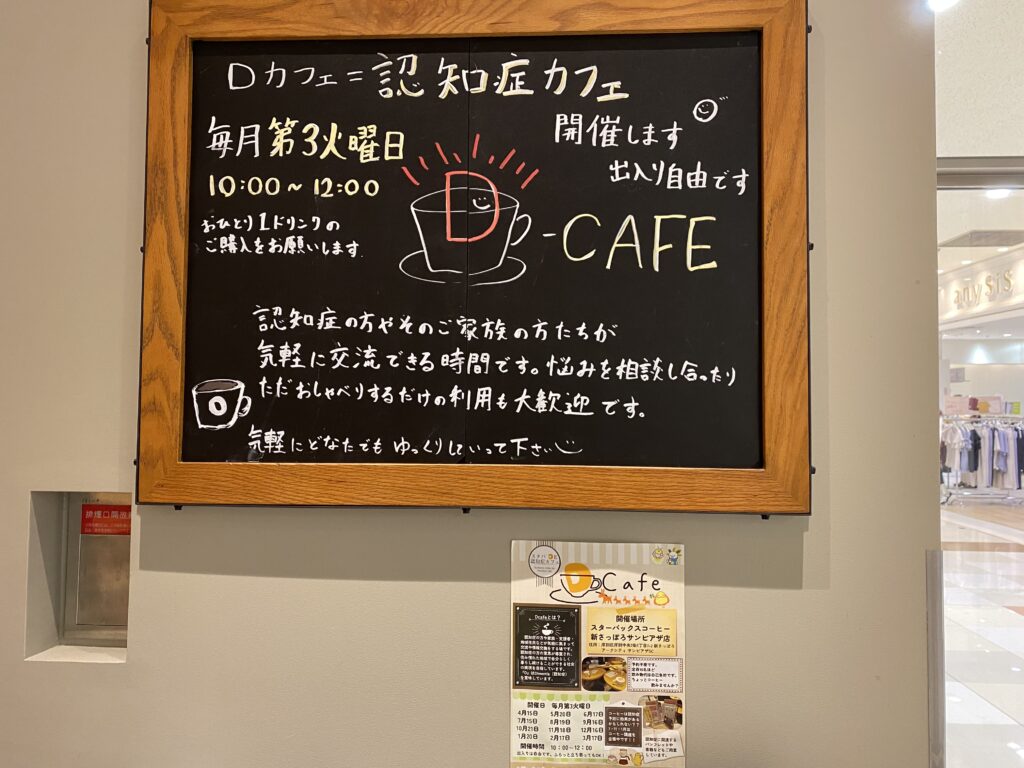 Dカフェ=認知症カフェ
毎月第3火曜日
10:00~12:00
おひとり1ドリンクの
ご購入をお願いします
開催します
出入り自由です
D-CAFE
認知症の方やそのご家族の方たちが
気軽に交流できる時間です。悩みを相談し合ったり
ただおしゃべりするだけの利用も大歓迎です。
気軽にどなたでもゆっくりしていって下さい
any SiS
排煙口開放
スタバで
認知症カフェ
D Cafe
Dcafeとは?
開催場所
スターバックスコーヒー
新さっぽろサンピアザ店
予約不要です。
ちょっとコーヒー
飲みませんか?
開催日 毎月第3火曜日
4月15日 5月20日 6月17日
7月15日 8月19日 9月16日
10月21日 11月18日 12月16日
1月20日 2月17日 3月17日
開催時間 10:00~12:00
出入りは自由です。ふらっと立ち寄ってもOK!